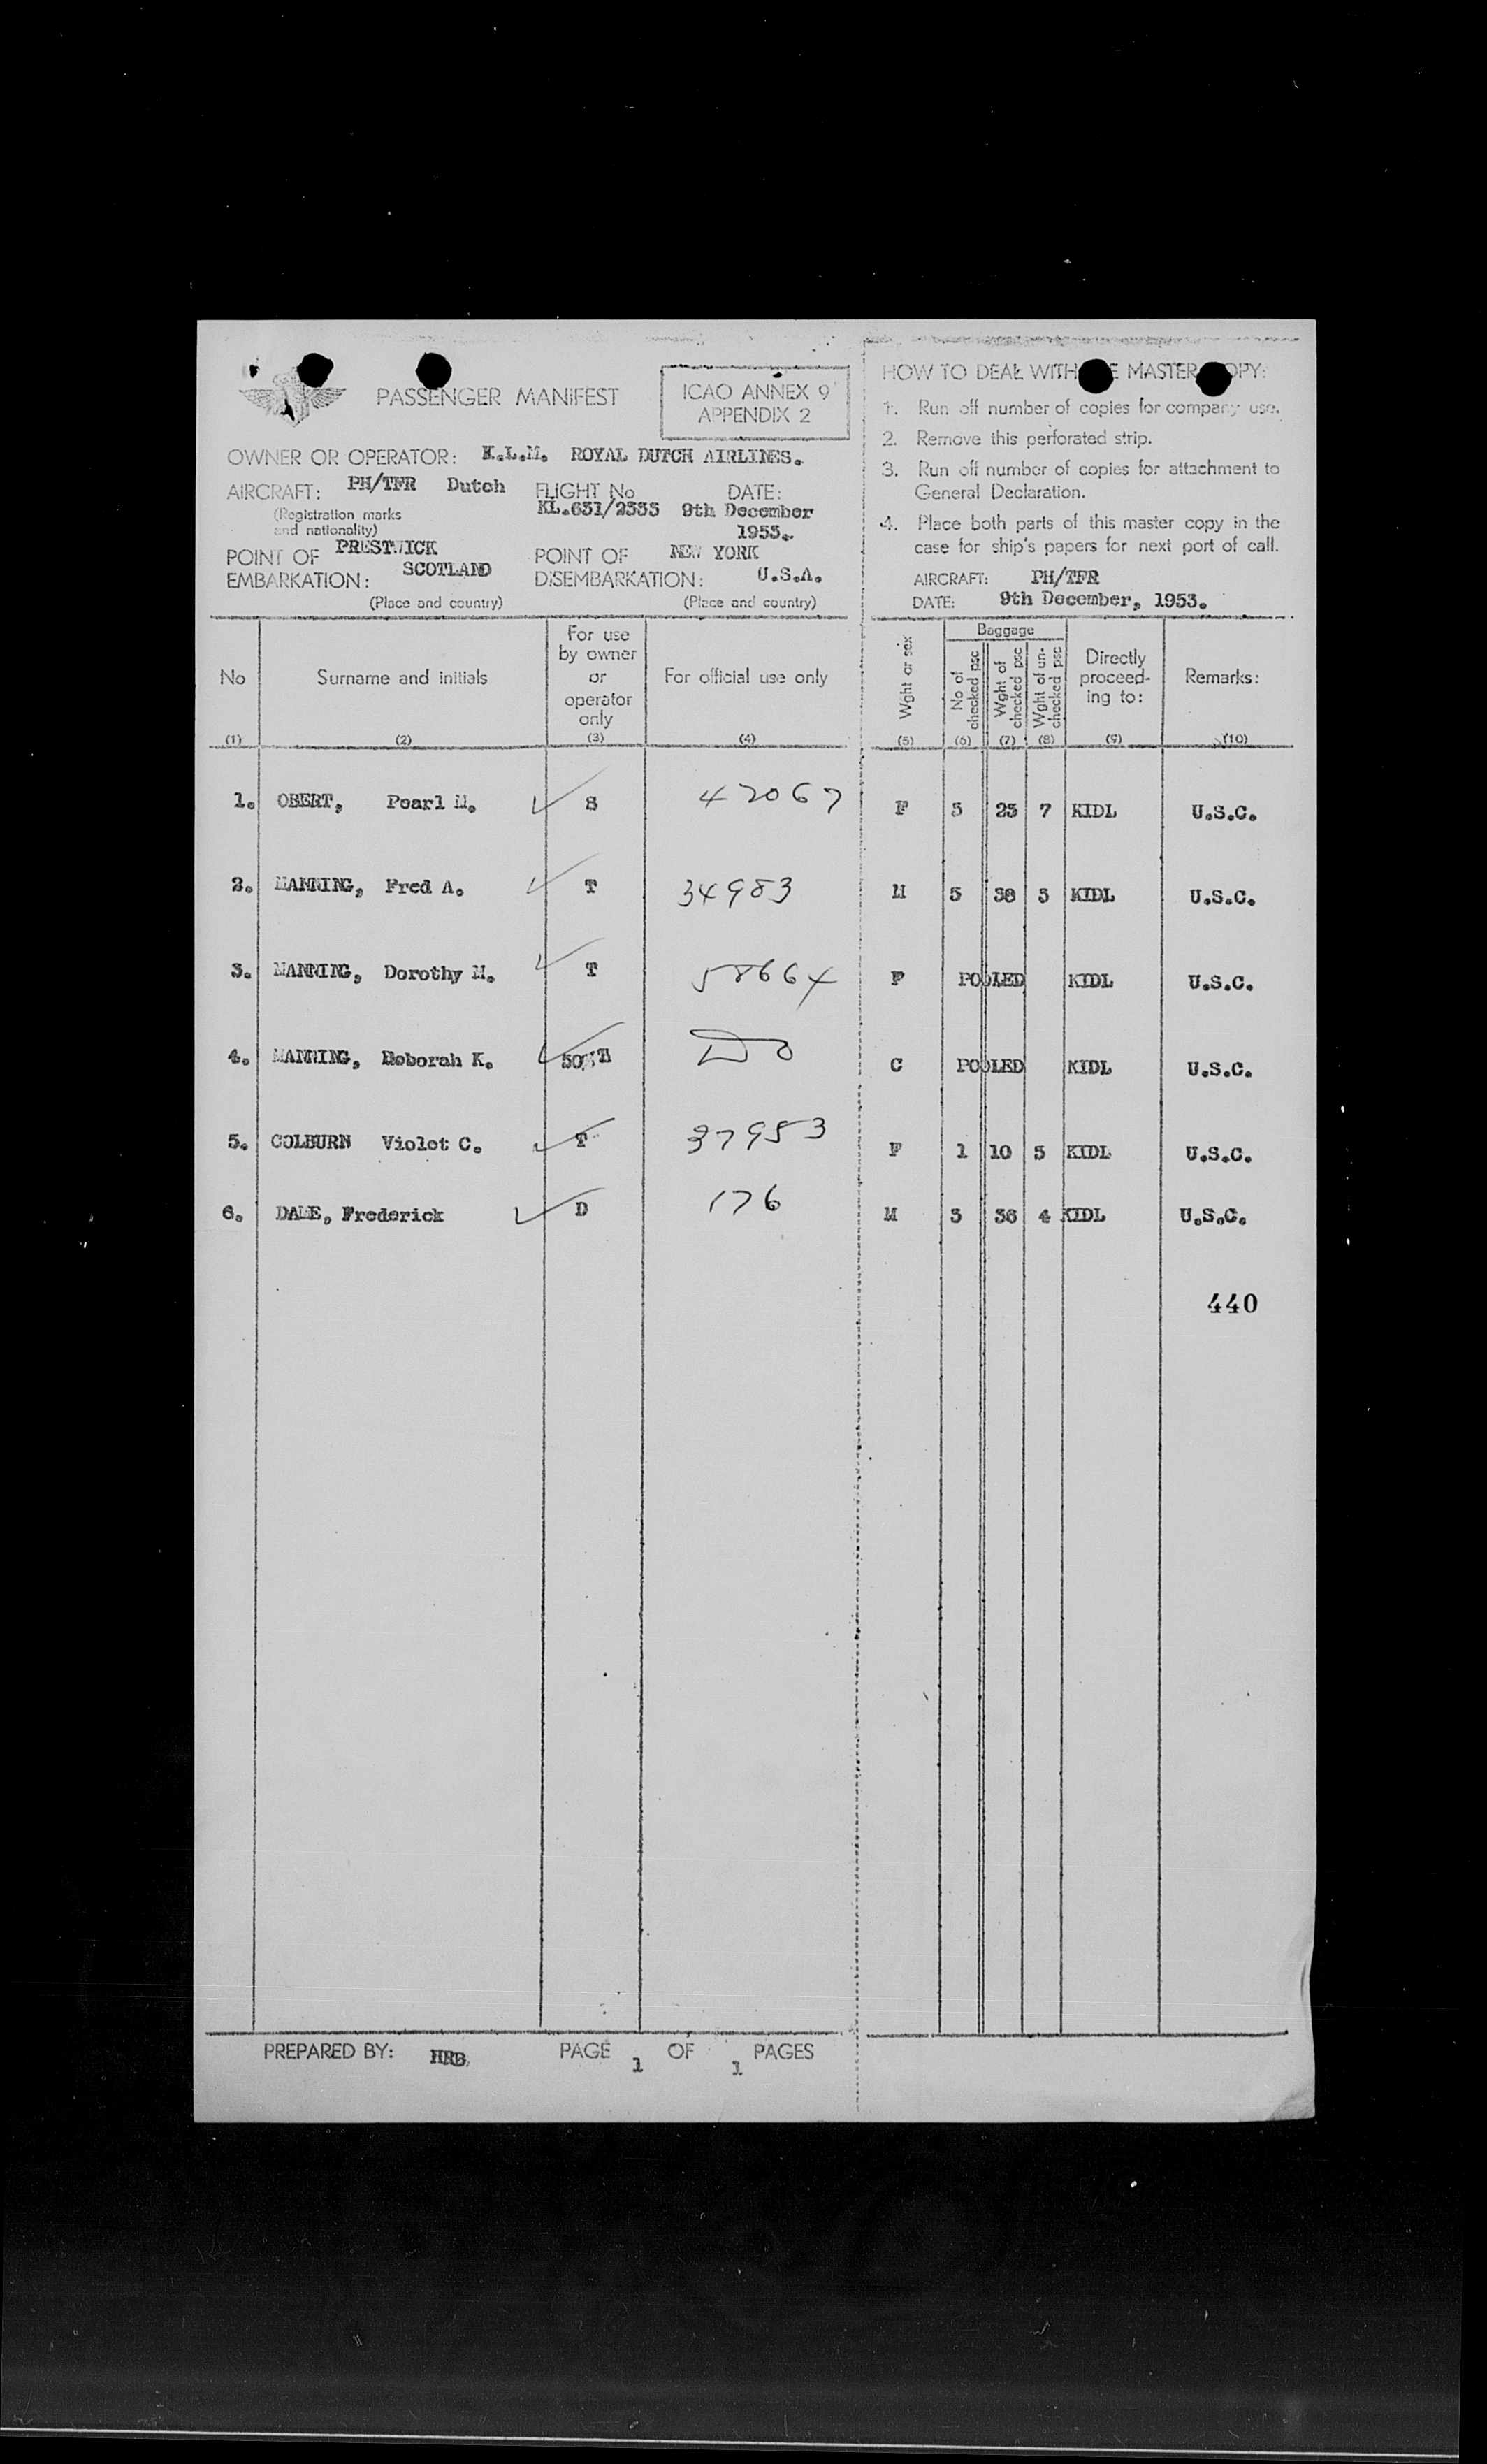 PASSENGER MANIFEST
ICAO ANNEX 9
APPENDIX 2
OWNER OR OPERATOR: K.L.M. ROYAL DUTCH AIRLINES.
AIRCRAFT: PH/TFR Dutch FLIGHT No DATE:
(Registration marks and nationality) KL.631/2333 9th December 1953.
POINT OF EMBARKATION: PRESTWICK SCOTLAND POINT OF DISEMBARKATION: NEW YORK U.S.A.
(Place and country) (Place and country)
No Surname and initials For use by owner or operator only For official use only
(1) (2) (3) (4)
1. OBERT, Pearl M. S 47067
2. MANNING, Fred A. T 34983
3. MANNING, Dorothy M. T 58664
4. MANNING, Deborah K. Do
5. COLBURN Violet C. T 37953
6. DALE, Frederick D 176
PREPARED BY: HRB. PAGE 1 OF 1 PAGES
HOW TO DEAL WITH MASTER
1. Run off number of copies for company use.
2. Remove this perforated strip.
3. Run off number of copies for attachment to
General Declaration.
4. Place both parts of this master copy in the
case for ship's papers for next port of call.
AIRCRAFT: PH/TFR
DATE: 9th December, 1953.
Wght or sex Baggage No of checked psc Wght of checked psc Wght of un-checked psc Directly proceed-ing to: Remarks:
(5) (6) (7) (8) (9) (10)
F 7 KIDL U.S.C.
M KIDL U.S.C.
F POOLED KIDL U.S.C.
C POOLED KIDL U.S.C.
F 1 10 KIDL U.S.C.
M 4 KIDL U.S.C.
440